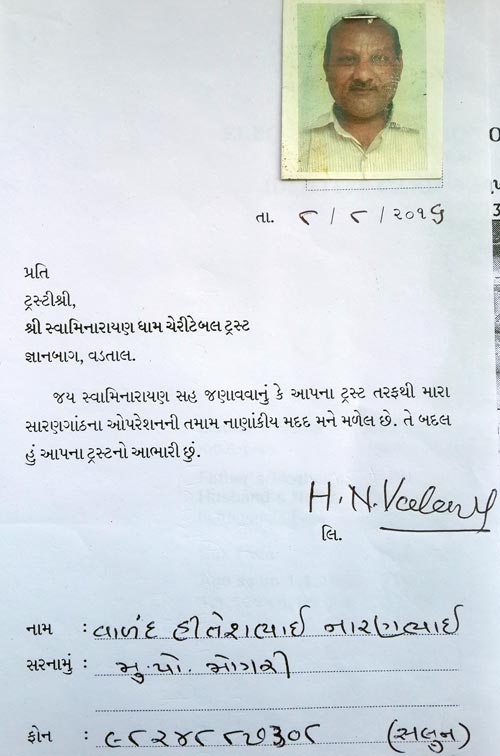 તા. ૮/૮/૨૦૧૬
પ્રતિ
ટ્રસ્ટીશ્રી,
શ્રી સ્વામિનારાયણ ધામ ચેરીટેબલ ટ્રસ્ટ
જ્ઞાનબાગ, વડતાલ.
જય સ્વામિનારાયણ સહ જણાવવાનું કે આપના ટ્રસ્ટ તરફથી મારા
સારણગાંઠના ઓપરેશનની તમામ નાણાંકીય મદદ મને મળેલ છે. તે બદલ
હું આપના ટ્રસ્ટનો આભારી છું.
H.N.Valand
લિ.
નામ : વાળંદ હીતેશભાઈ નારણભાઈ
સરનામું : મુ.પો. મોગરી
ફોન : ૯૮૨૪૮૮૭૩૦૮ (સલુન)